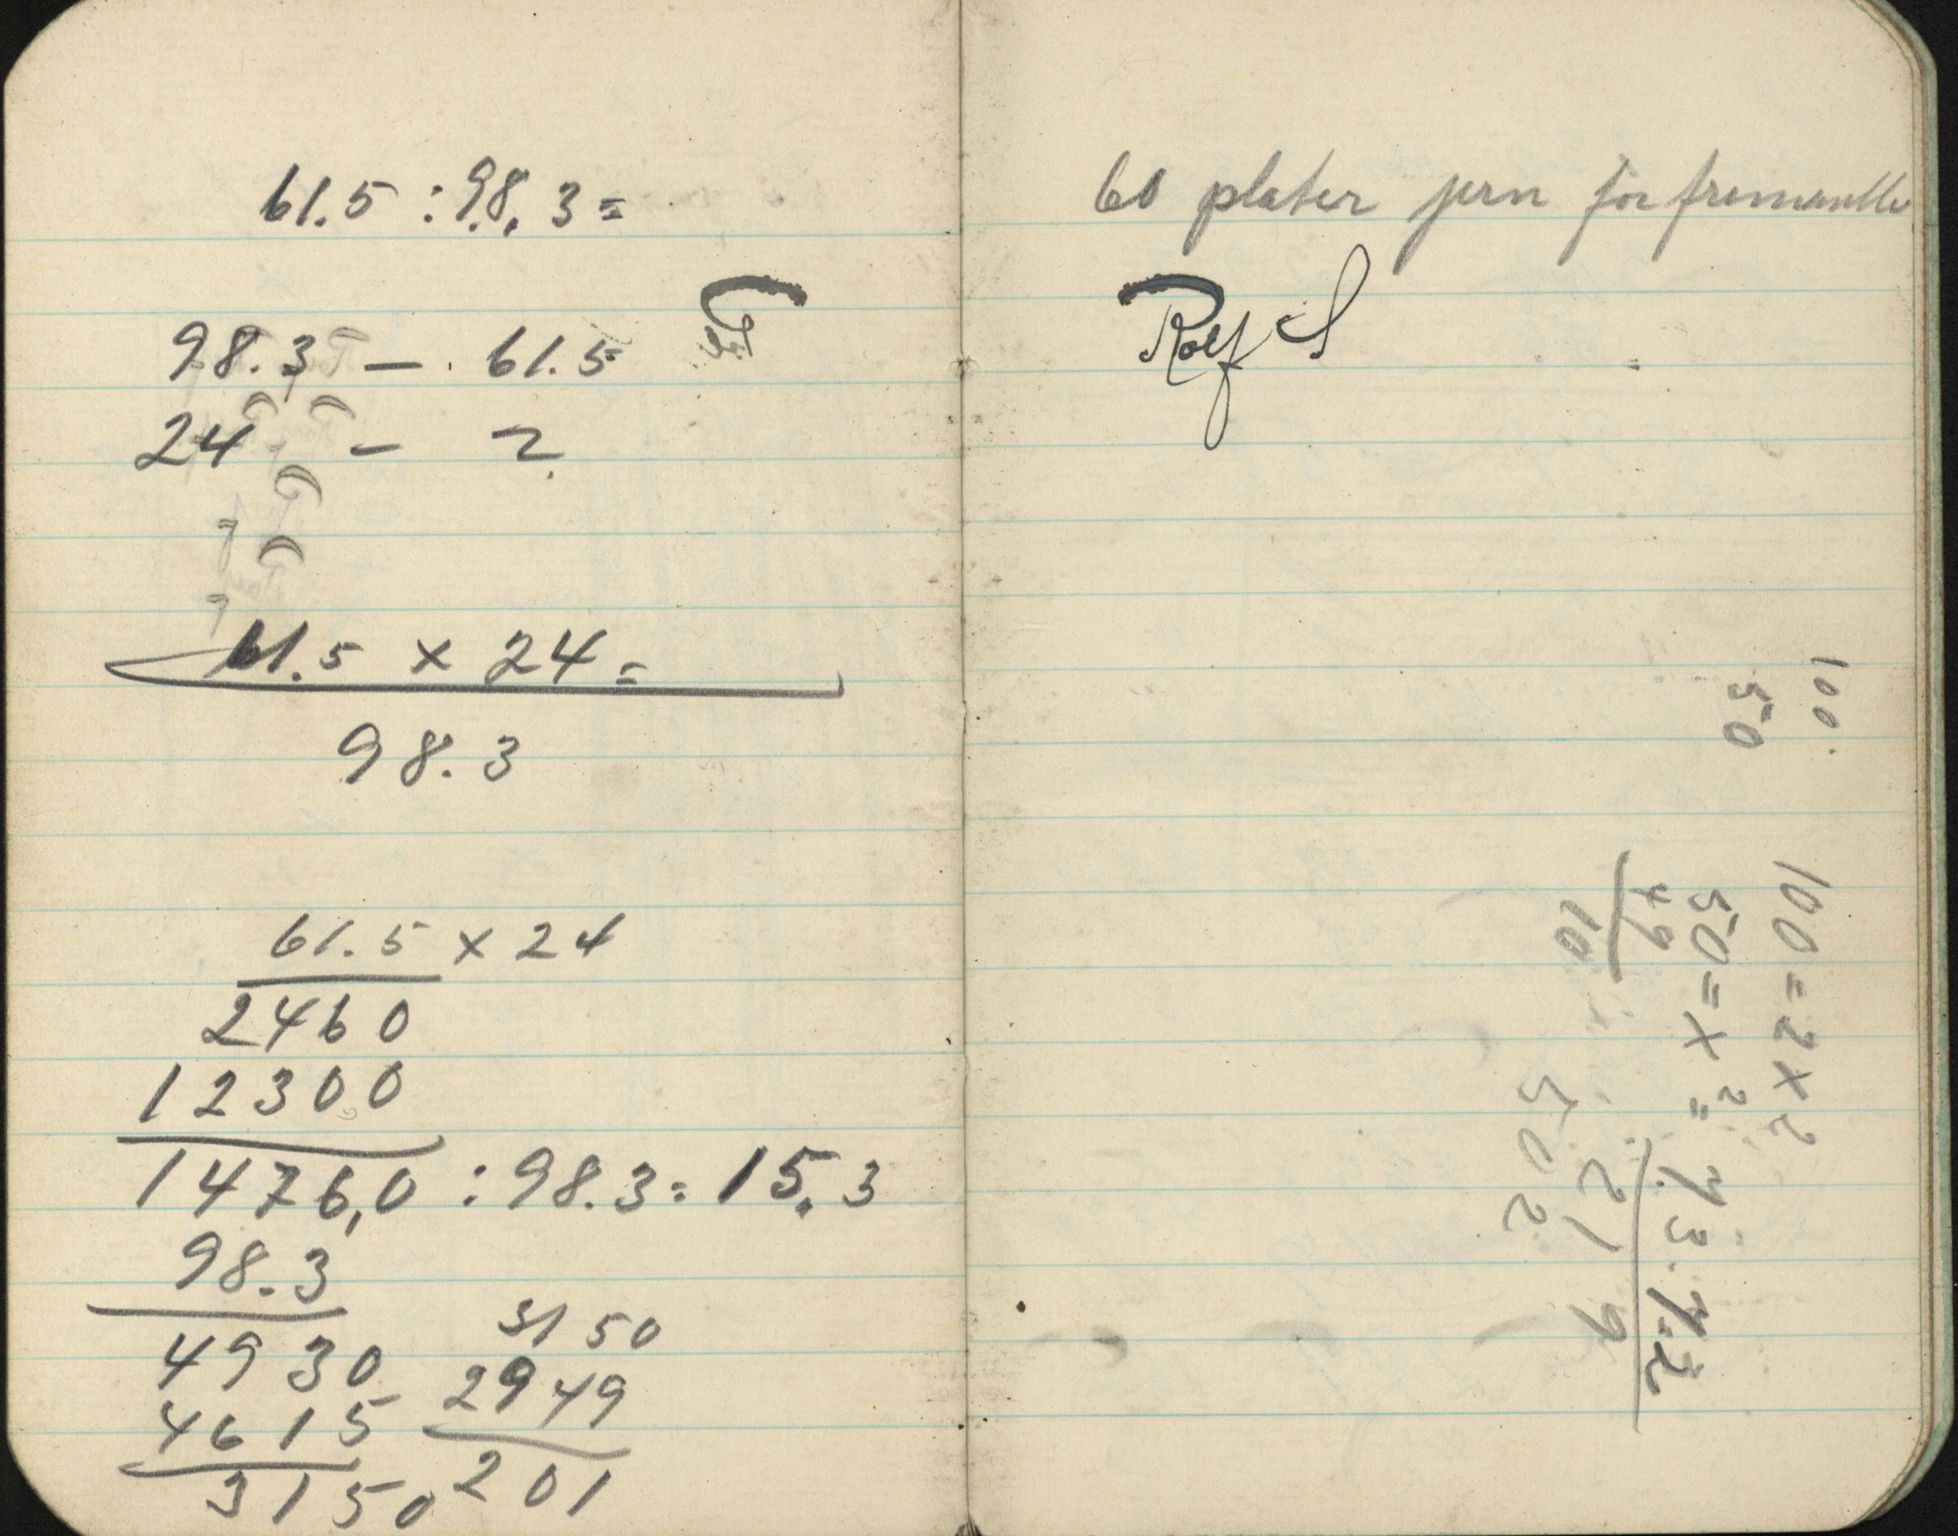 61.5 : 98.3 =
98.3 — 61.5
24 — ?
61.5 x 24 =
98.3
61.5 x 24
2460
12300
1476,0 : 98.3 = 15.3
98.3
4930
4615
3150
3150
2949
201
60 plater jern for fremantle
Rolf S
100
50
100 = 2x²
50 = x² =
49
10
7.3.7.2
219
502